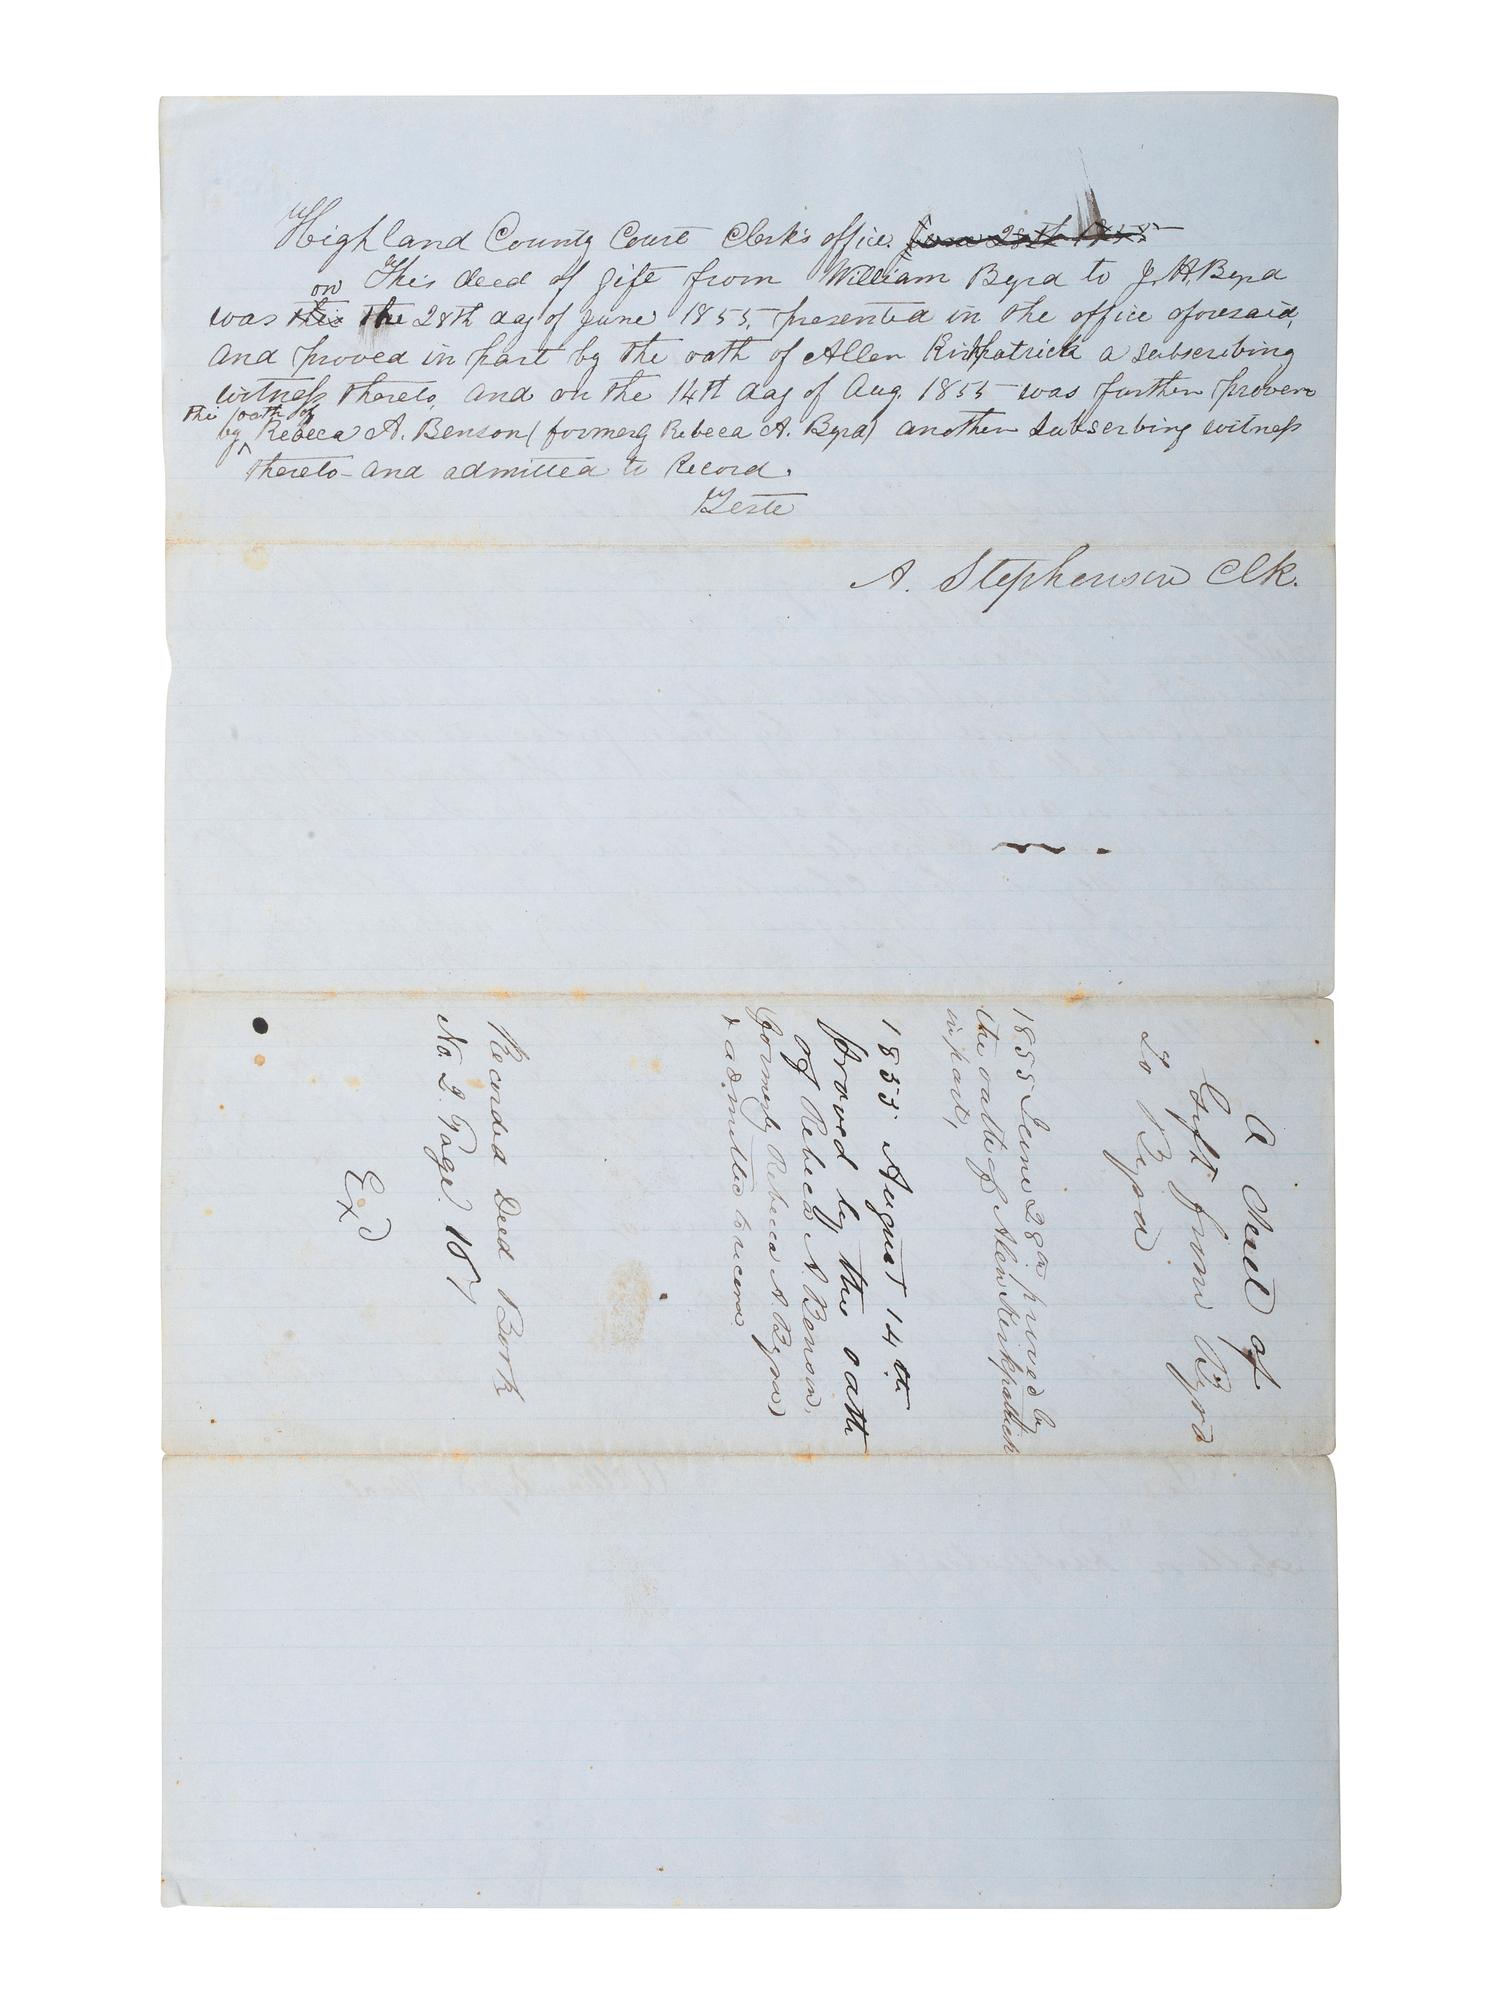 Highland County Court Clerk's office. June 28th 1855
This deed of gift from William Byrd to J. H. Byrd
on
was this the 28th day of June 1855, presented in the office aforesaid,
and proved in part by the oath of Allen Kirkpatrick a subscribing
witness thereto, and on the 14th day of Aug. 1855 was further proven
the oath of
by ^ Rebeca A. Benson (formerly Rebeca A. Byrd) another subscribing witness
thereto and admitted to Record.
Teste
A. Stephenson Clk.
A deed of
Gift from Byrd
To Byrd
1855 June 28th proved by
the oath of Allen Kirkpatrick
in part,
1855 August 14th
proved by the oath
of Rebeca A. Benson,
(formerly Rebecca A. Byrd)
& admitted to record
Recorded Deed Book
No. 2. Page. 187
Exd